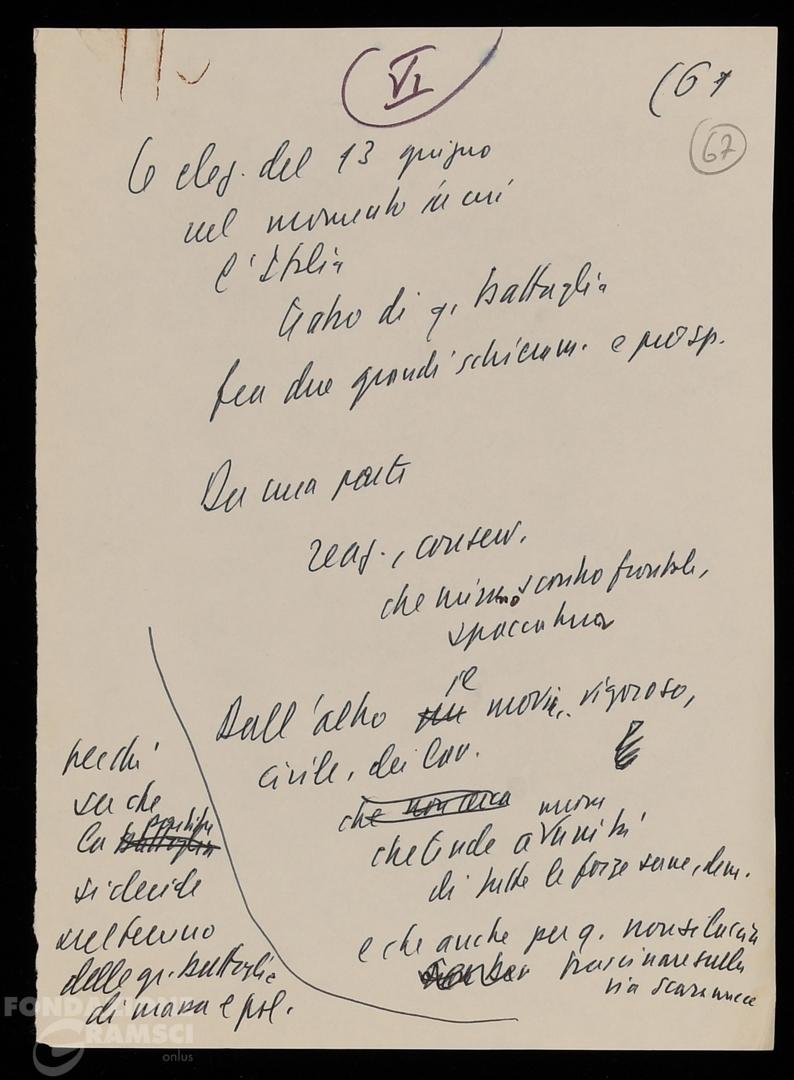 VI
(67
67
Le elez. del 13 giugno
nel momento in cui
l'Italia
teatro di gr. battaglia
fra due grandi schieram. e prosp.
Da una parte
reaz., conserv.
che mirano scontro frontale,
spaccatura
Dall'altro il movim. vigoroso,
civile, dei lav.
che non cerca
che tende a nuova unità
di tutte le forze sane, dem.
e che anche per q. non si lascia
trascinare sulla
via scaramucce
perché
sa che
la partita
battaglia
si decide
sul terreno
delle gr. battaglie
di massa e pol.
FONDAZIONE
GRAMSCI
onlus